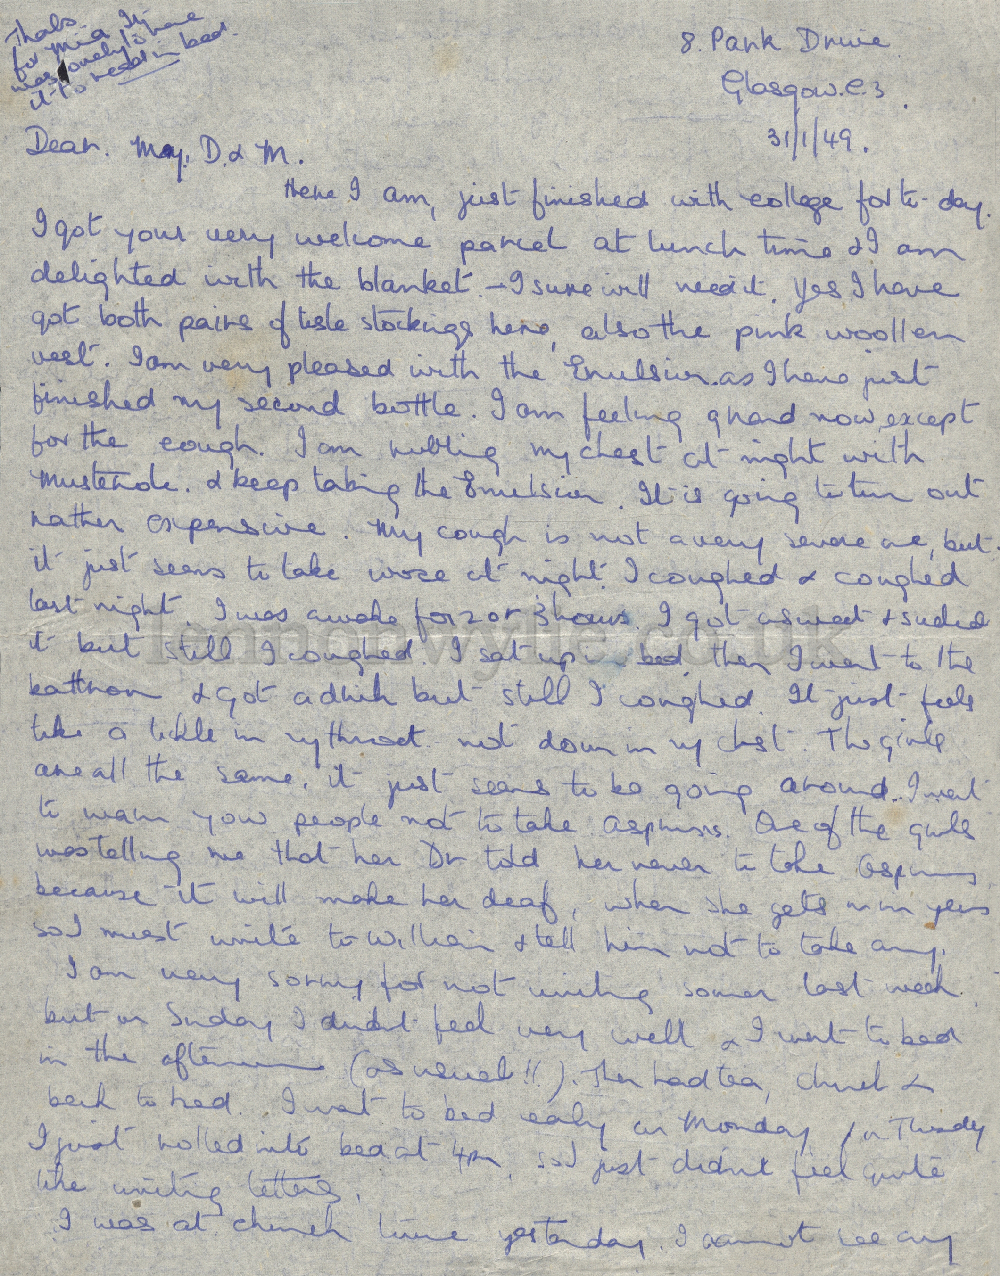 Thats
for mia. It
was lovely to have
it to read in bed.
8. Park Drive
Glasgow. C.3.
31/1/49.
Dear. May, D. & M.
Here I am, just finished with college for to-day.
I got your very welcome parcel at lunch time & I am
delighted with the blanket - I sure will need it. Yes I have
got both pairs of lisle stockings here, also the pink woollen
vest. I am very pleased with the Emulsion as I have just
finished my second bottle. I am feeling grand now, except
for the cough. I am rubbing my chest at night with
Musterole. & keep taking the Emulsion. It is going to turn out
rather expensive. My cough is not a very severe one, but
it just seems to take worse at night. I coughed & coughed
last night. I was awake for 2 or 3 hours. I got a sweet & sucked
it but still I coughed. I sat up in bed, then I went to the
bathroom & got a drink but still I coughed. It just feels
like a tickle in my throat not down in my chest. The girls
are all the same, it just seems to be going around. I want
to warn you people not to take aspirins. One of the girls
was telling me that her Dr told her never to take aspirins
because it will make her deaf, when she gets on in years
so I must write to William & tell him not to take any.
I am very sorry for not writing sooner last week
but on Sunday I didnt feel very well & I went to bed
in the afternoon (as usual!!). Then had tea, church &
back to bed. I went to bed early on Monday, on Tuesday
I just rolled into bed at 4pm, so I just didnt feel quite
like writing letters.
I was at church twice yesterday. I cannot see any
lennonwylie.co.uk